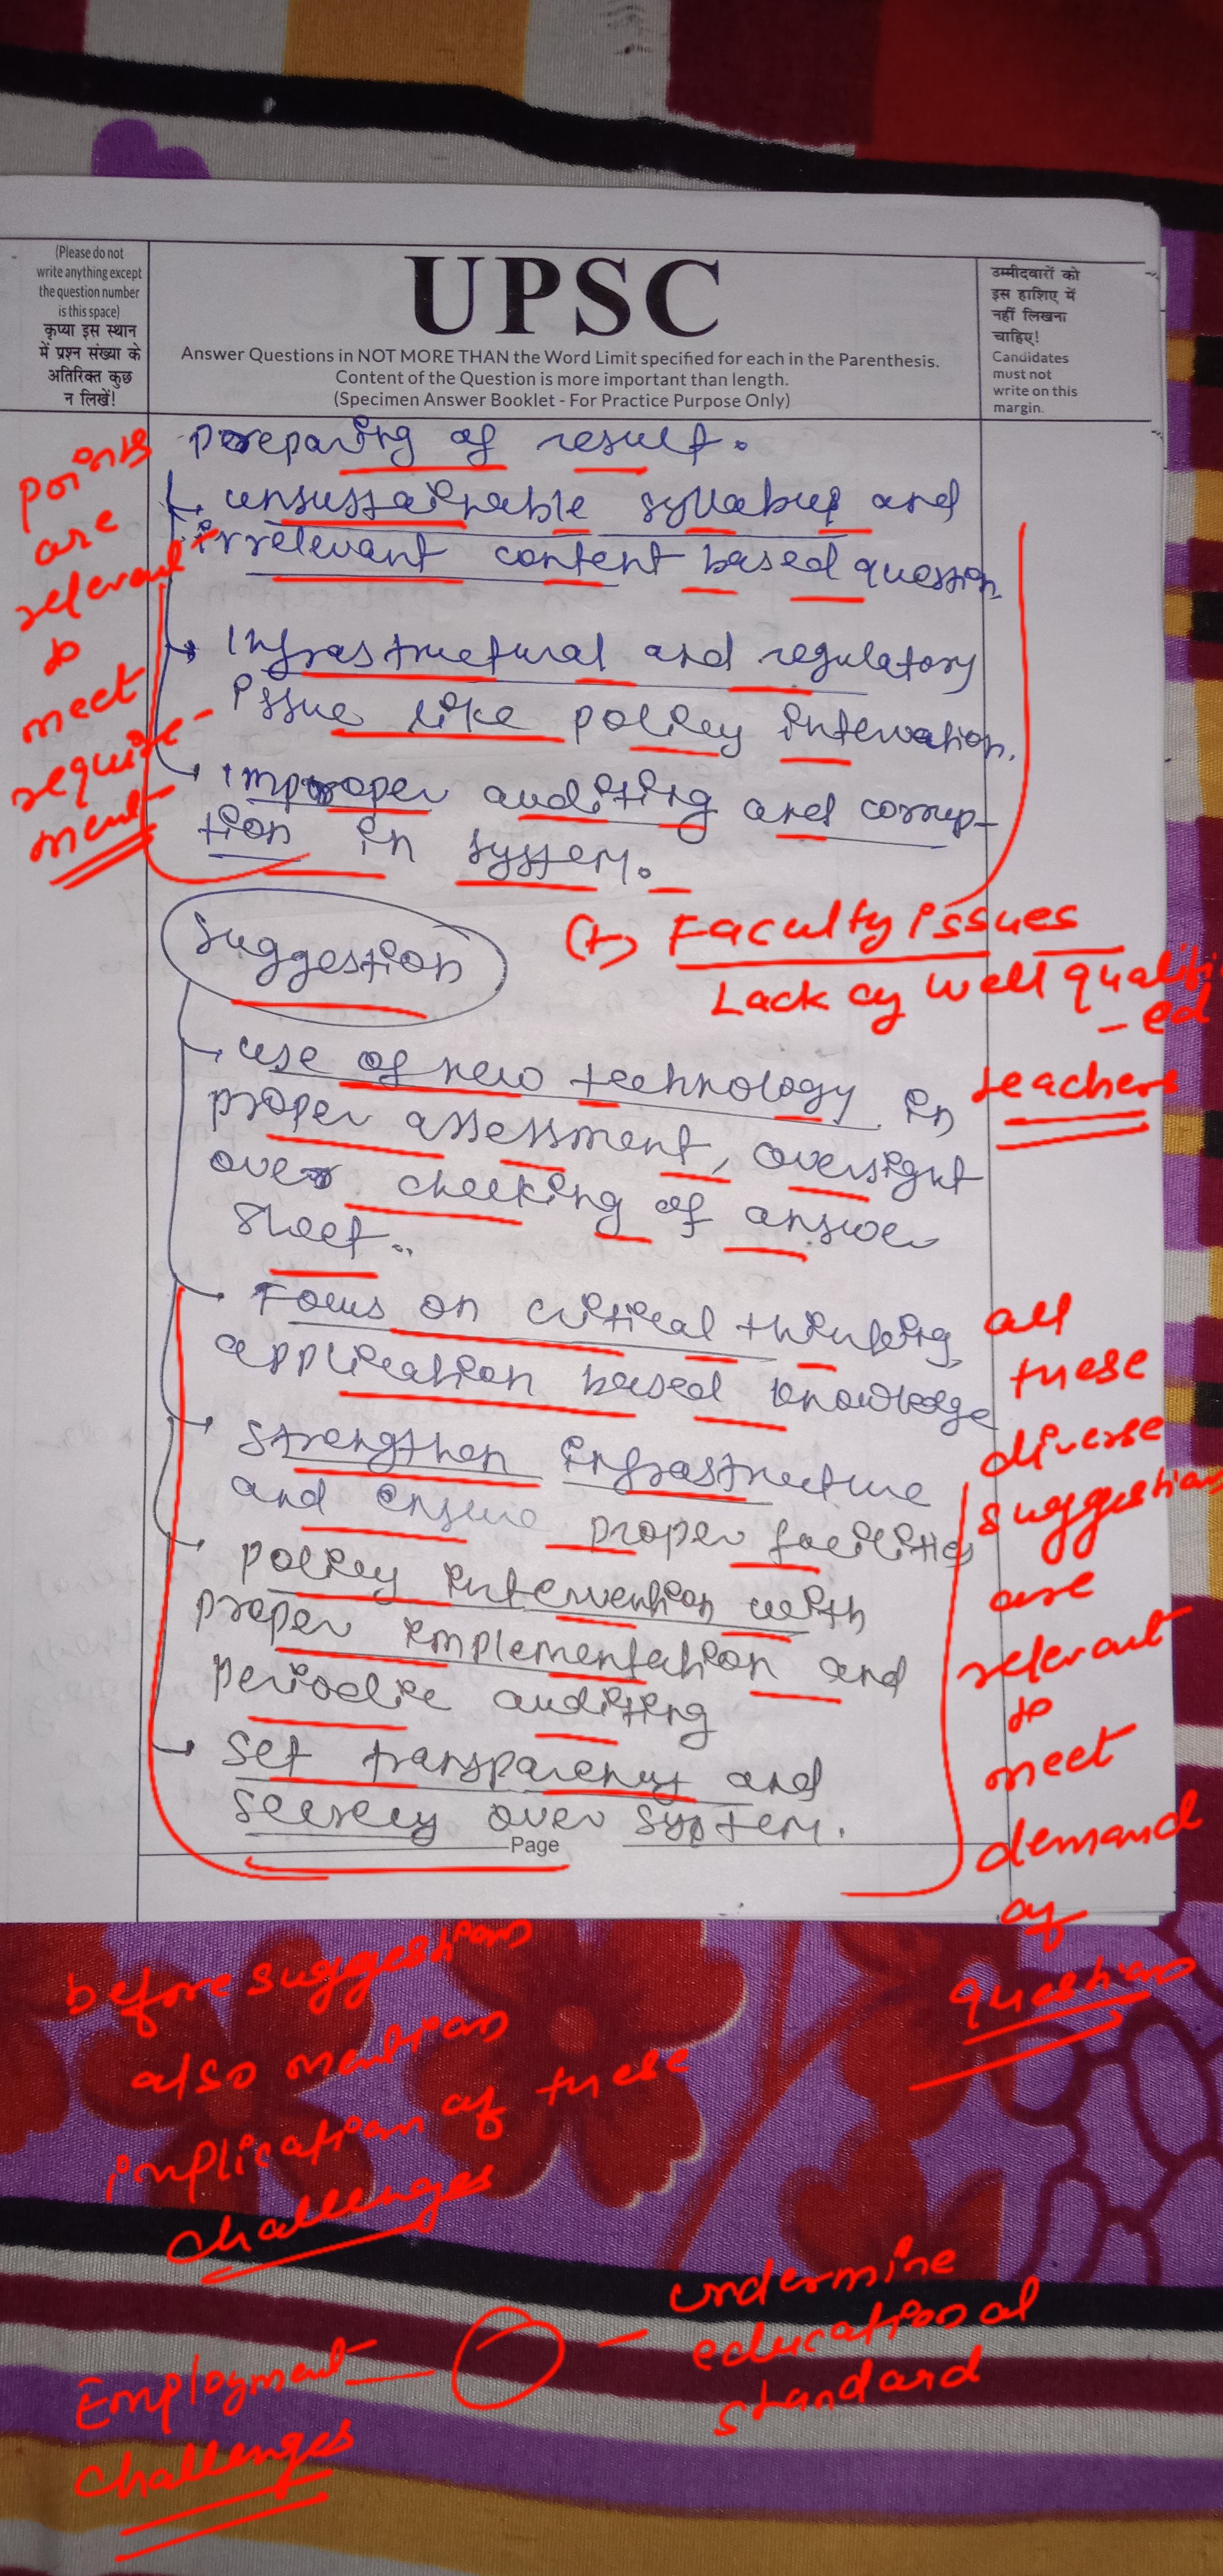 (Please do not
write anything except
the question number
is this space)
कृप्या इस स्थान
में प्रश्न संख्या के
अतिरिक्त कुछ
न लिखें!
UPSC
Answer Questions in NOT MORE THAN the Word Limit specified for each in the Parenthesis.
Content of the Question is more important than length.
(Specimen Answer Booklet - For Practice Purpose Only)
उम्मीदवारों को
इस हाशिए में
नहीं लिखना
चाहिए!
Candidates
must not
write on this
margin.
preparing of result.
unsustainable syllabus and
irrelevant content based question.
Points
are
relevant
to
meet
require-
ment
Infrastructural and regulatory
issue like policy intervation.
improper auditing and corrup-
tion in system.
(+) Faculty issues
Lack of well qualifi
- ed
teachers
Suggestion
use of new technology in
proper assessment, oversight
over checking of answer
sheet..
Focus on critical thinking,
application based knowledge
Strengthen infrastructure
and ensure proper facilities
policy intervention with
proper implementation and
periodic auditing
Set transparency and
over system.
Page
all
these
diverse
suggestions
are
relevant
to
meet
demand
of
questions
before suggestions
also mention
implication of these
challenges
Employment
challenges
undermine
educational
standard